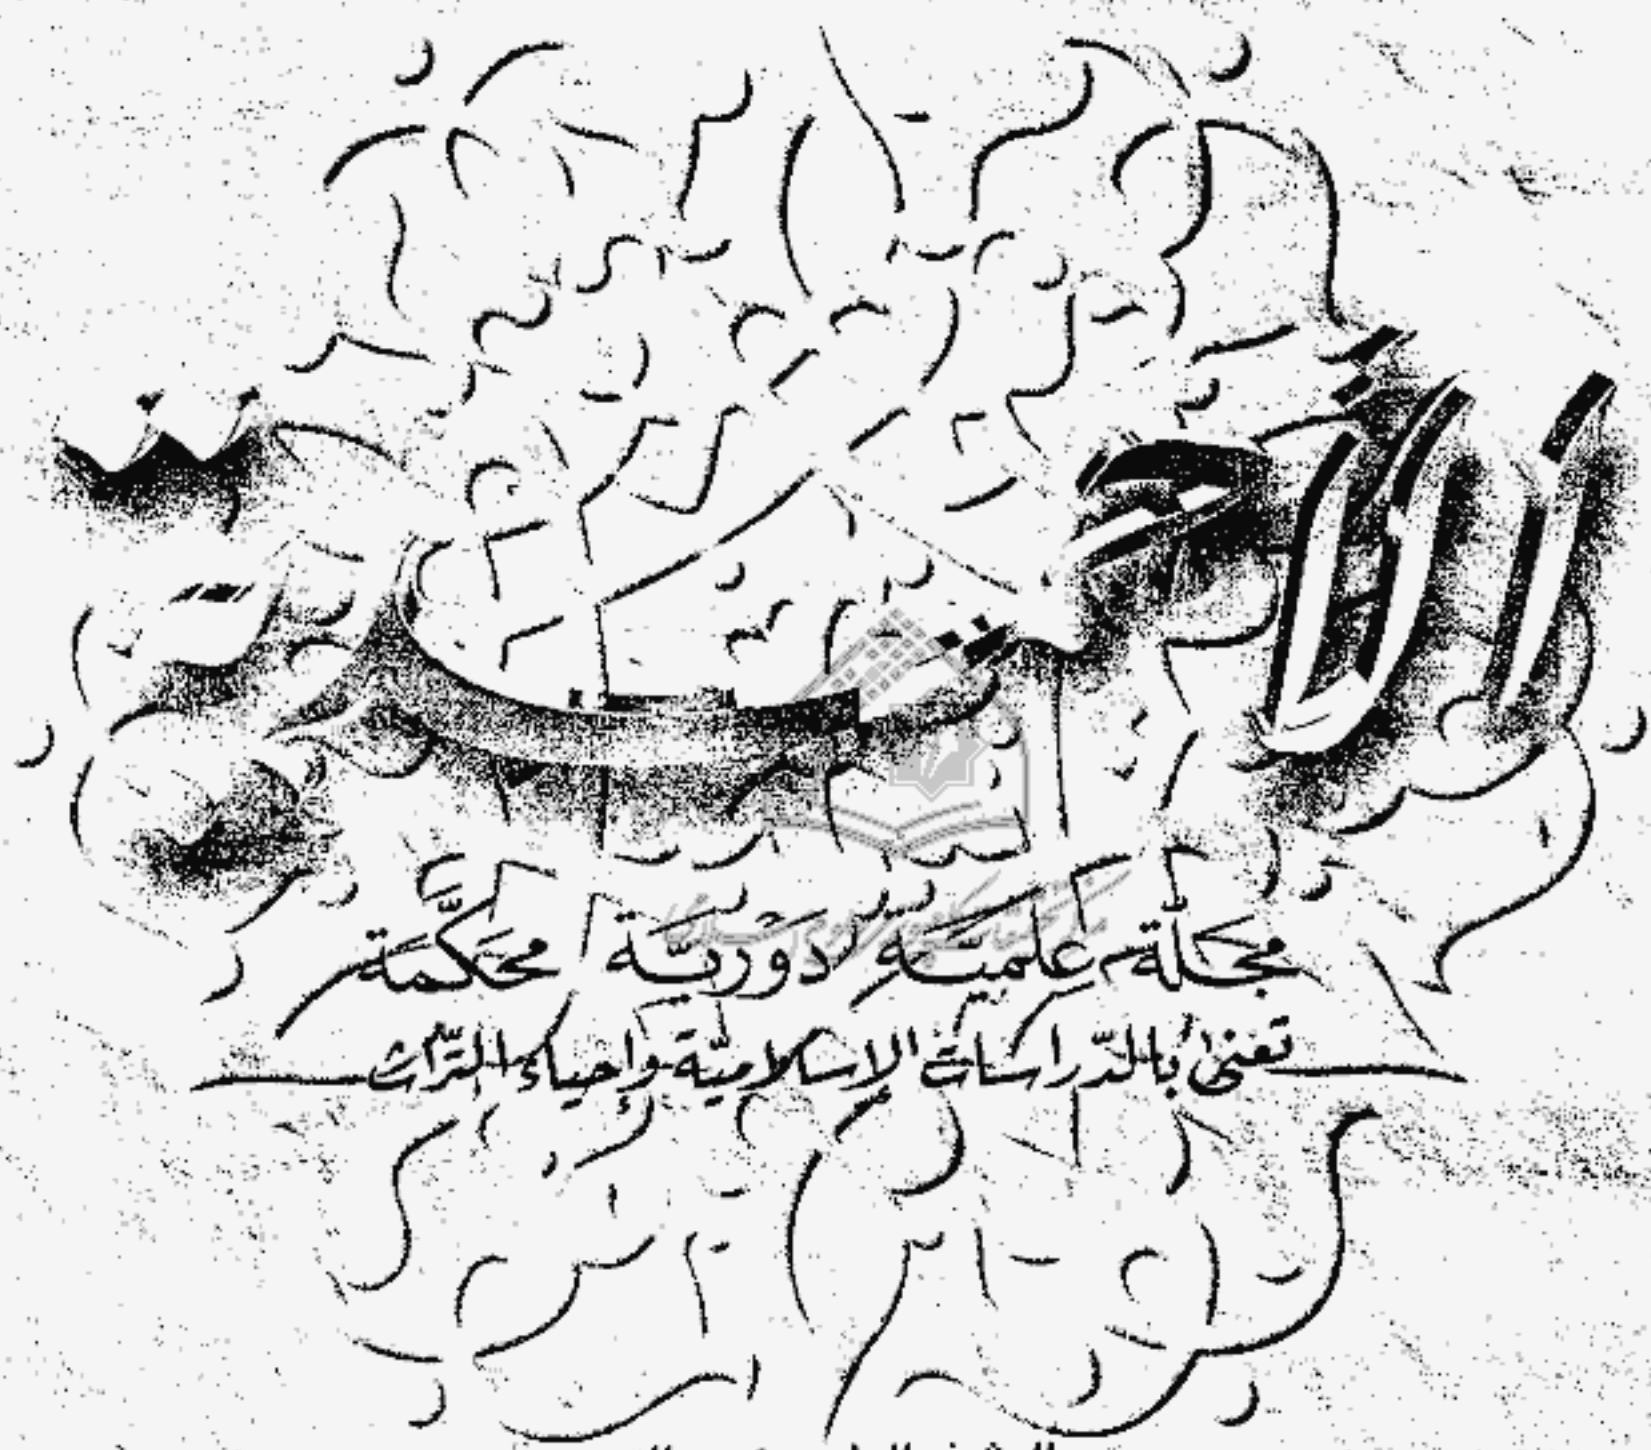 الأحمدية
مجَلّة علميَّة دَوريَّة محَكَّمَة
تعنىٰ بالدّراسات الإسلاميّة وإحياء التّراث